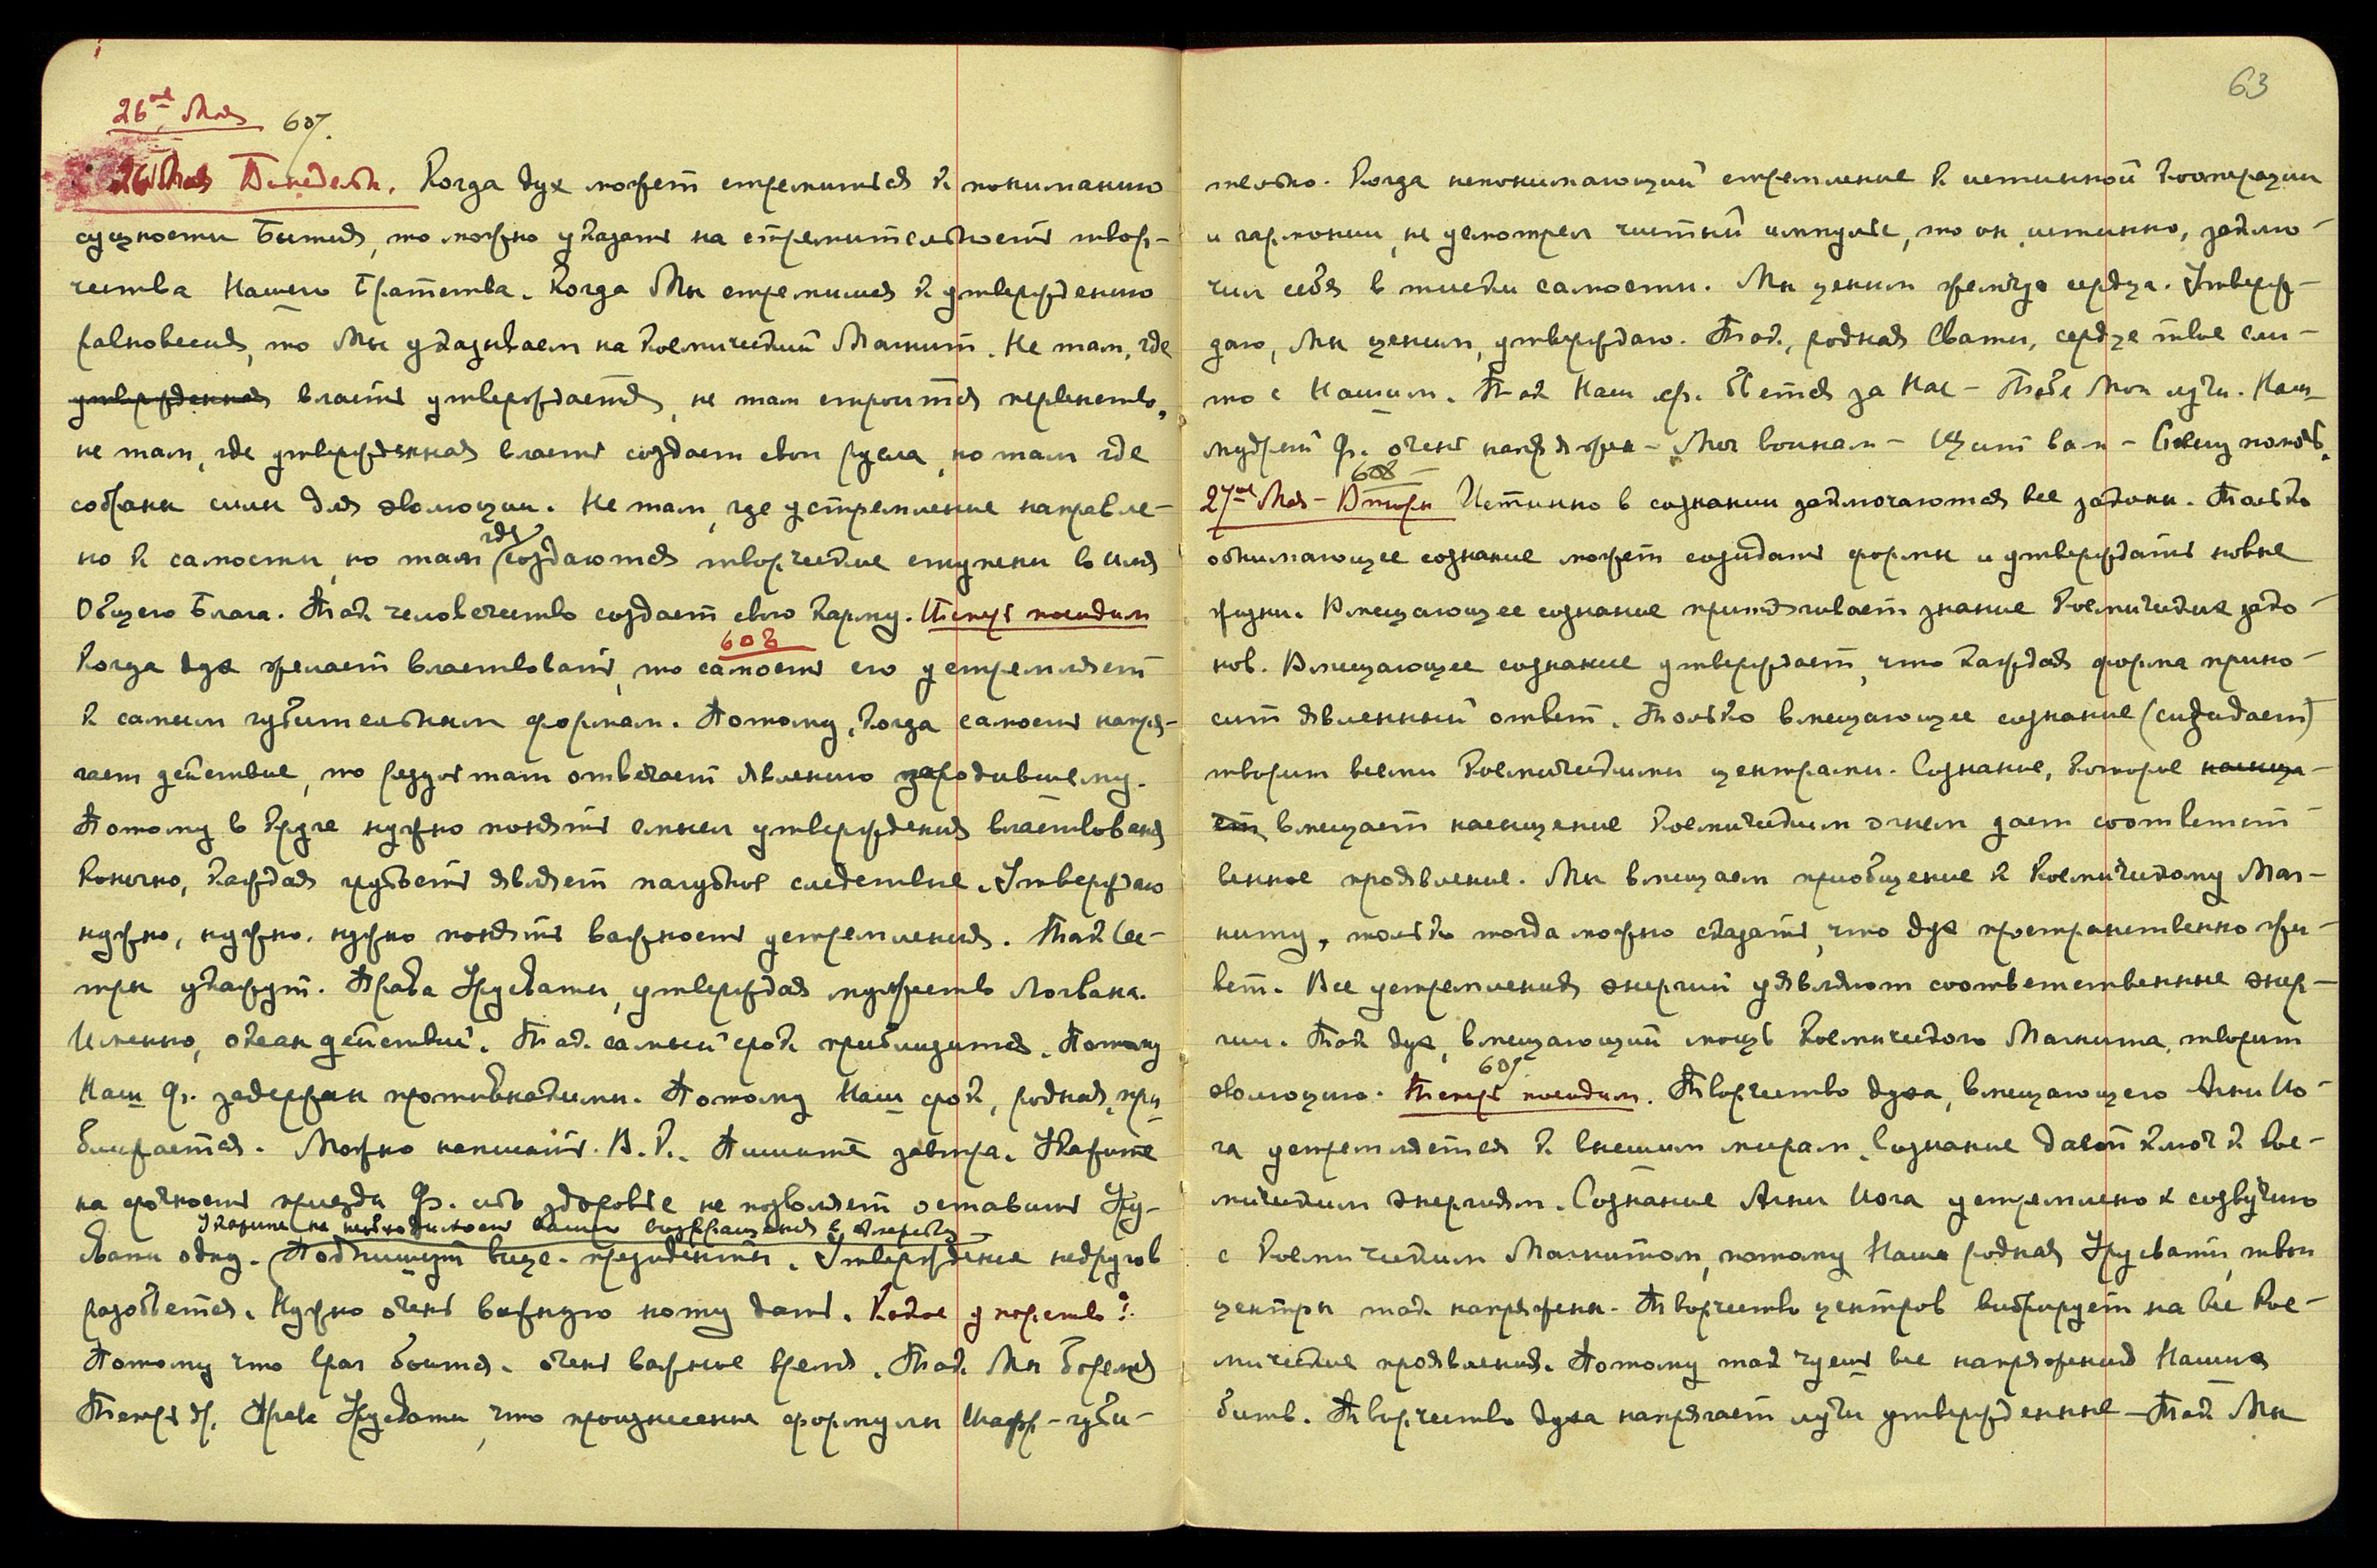 26ое Мая 607.
26 Мая Понедельн. Когда дух может стремиться к пониманию
сущности Бытия, то можно указать на стремительность твор-
чества Нашего Братства. Когда Мы стремимся к утверждению
равновесия, то Мы указываем на Космический Магнит. Не там, где
утвержденная власть утверждается, не там строится первенство,
не там, где утвержденная власть создает свои русла, но там где
собраны силы для эволюции. Не там, где устремление направле-
но к самости, но там где создаются творческие ступени во имя
Общего Блага. Так человечество создает свою карму. Теперь посидим
608
Когда дух желает властвовать, то самость его устремляет
к самым губительным формам. Потому, когда самость напря-
гает действие, то результат отвечает явлению зародившему.
Потому в круге нужно понять смысл утверждения властвования
Конечно, каждая грубость являет пагубное следствие. Утверждаю
нужно, нужно, нужно понять важность устремления. Так Се-
стры укажут. Права Урусвати, утверждая мужество Логвана.
Именно, океан действий. Так самый срок приблизится. Потому
Наш Ф. задержан противниками. Потому Наш срок, родная, при-
ближается. Можно написать. В. К. Пишите завтра. Укажите
на срочность приезда Ф. ибо здоровье не позволяет оставить Уру-
Укажите на необходимость вашего возвращения в Америку
свати одну. Подпишут вице-президенты. Утверждение недругов
разобьется. Нужно очень важную ноту дать. Какое упорство?
Потому что враг боится. очень важное время. Так Мы боремся
Теперь др. Права Урусвати, что произнесение формулы Шафр-губи-
63
тельно. Когда непонимающий стремление к истинной кооперации
и гармонии, не усмотрел чистый импульс, то он, истинно, заклю-
чил себя в тиски самости. Мы ценим жемчуг сердца. Утверж-
даю, Мы ценим, утверждаю. Так, родная Свати, сердце твое сли-
то с Нашим. Так Наш ф. бьется за Нас – Тебе Мои лучи. Наш
мудрый Ф. очень напряжен – Меч воинам – Щит вам – Спешу помочь.
608
27ое Мая – Вторн Истинно в сознании заключаются все законы. Только
обнимающее сознание может созидать формы и утверждать новые
жизни. Вмещающее сознание притягивает знание Космических зако-
нов. Вмещающее сознание утверждает, что каждая форма прино-
сит явленный ответ. Только вмещающее сознание (созидает)
творит всеми Космическими центрами. Сознание, которое насыща-
ет вмещает насыщение Космическим огнем дает соответст-
венное проявление. Мы вмещаем приобщение к Космическому Маг-
ниту, только тогда можно сказать, что дух пространственно жи-
вет. Все устремления энергий уявляют соответственные энер-
гии. Так дух, вмещающий мощь Космического Магнита, творит
609
эволюцию. Теперь посидим. Творчество духа, вмещающего Агни Йо-
га устремляется к высшим мирам. Сознание дает ключ к Кос-
мическим энергиям. Сознание Агни Йога устремлено к созвучию
с Космическим Магнитом, потому Наша родная Урусвати, твои
центры так напряжены. Творчество центров вибрирует на все Кос-
мические проявления. Потому так чуешь все напряжения Наших
битв. Творчество духа напрягает лучи утвержденные – Так Мы